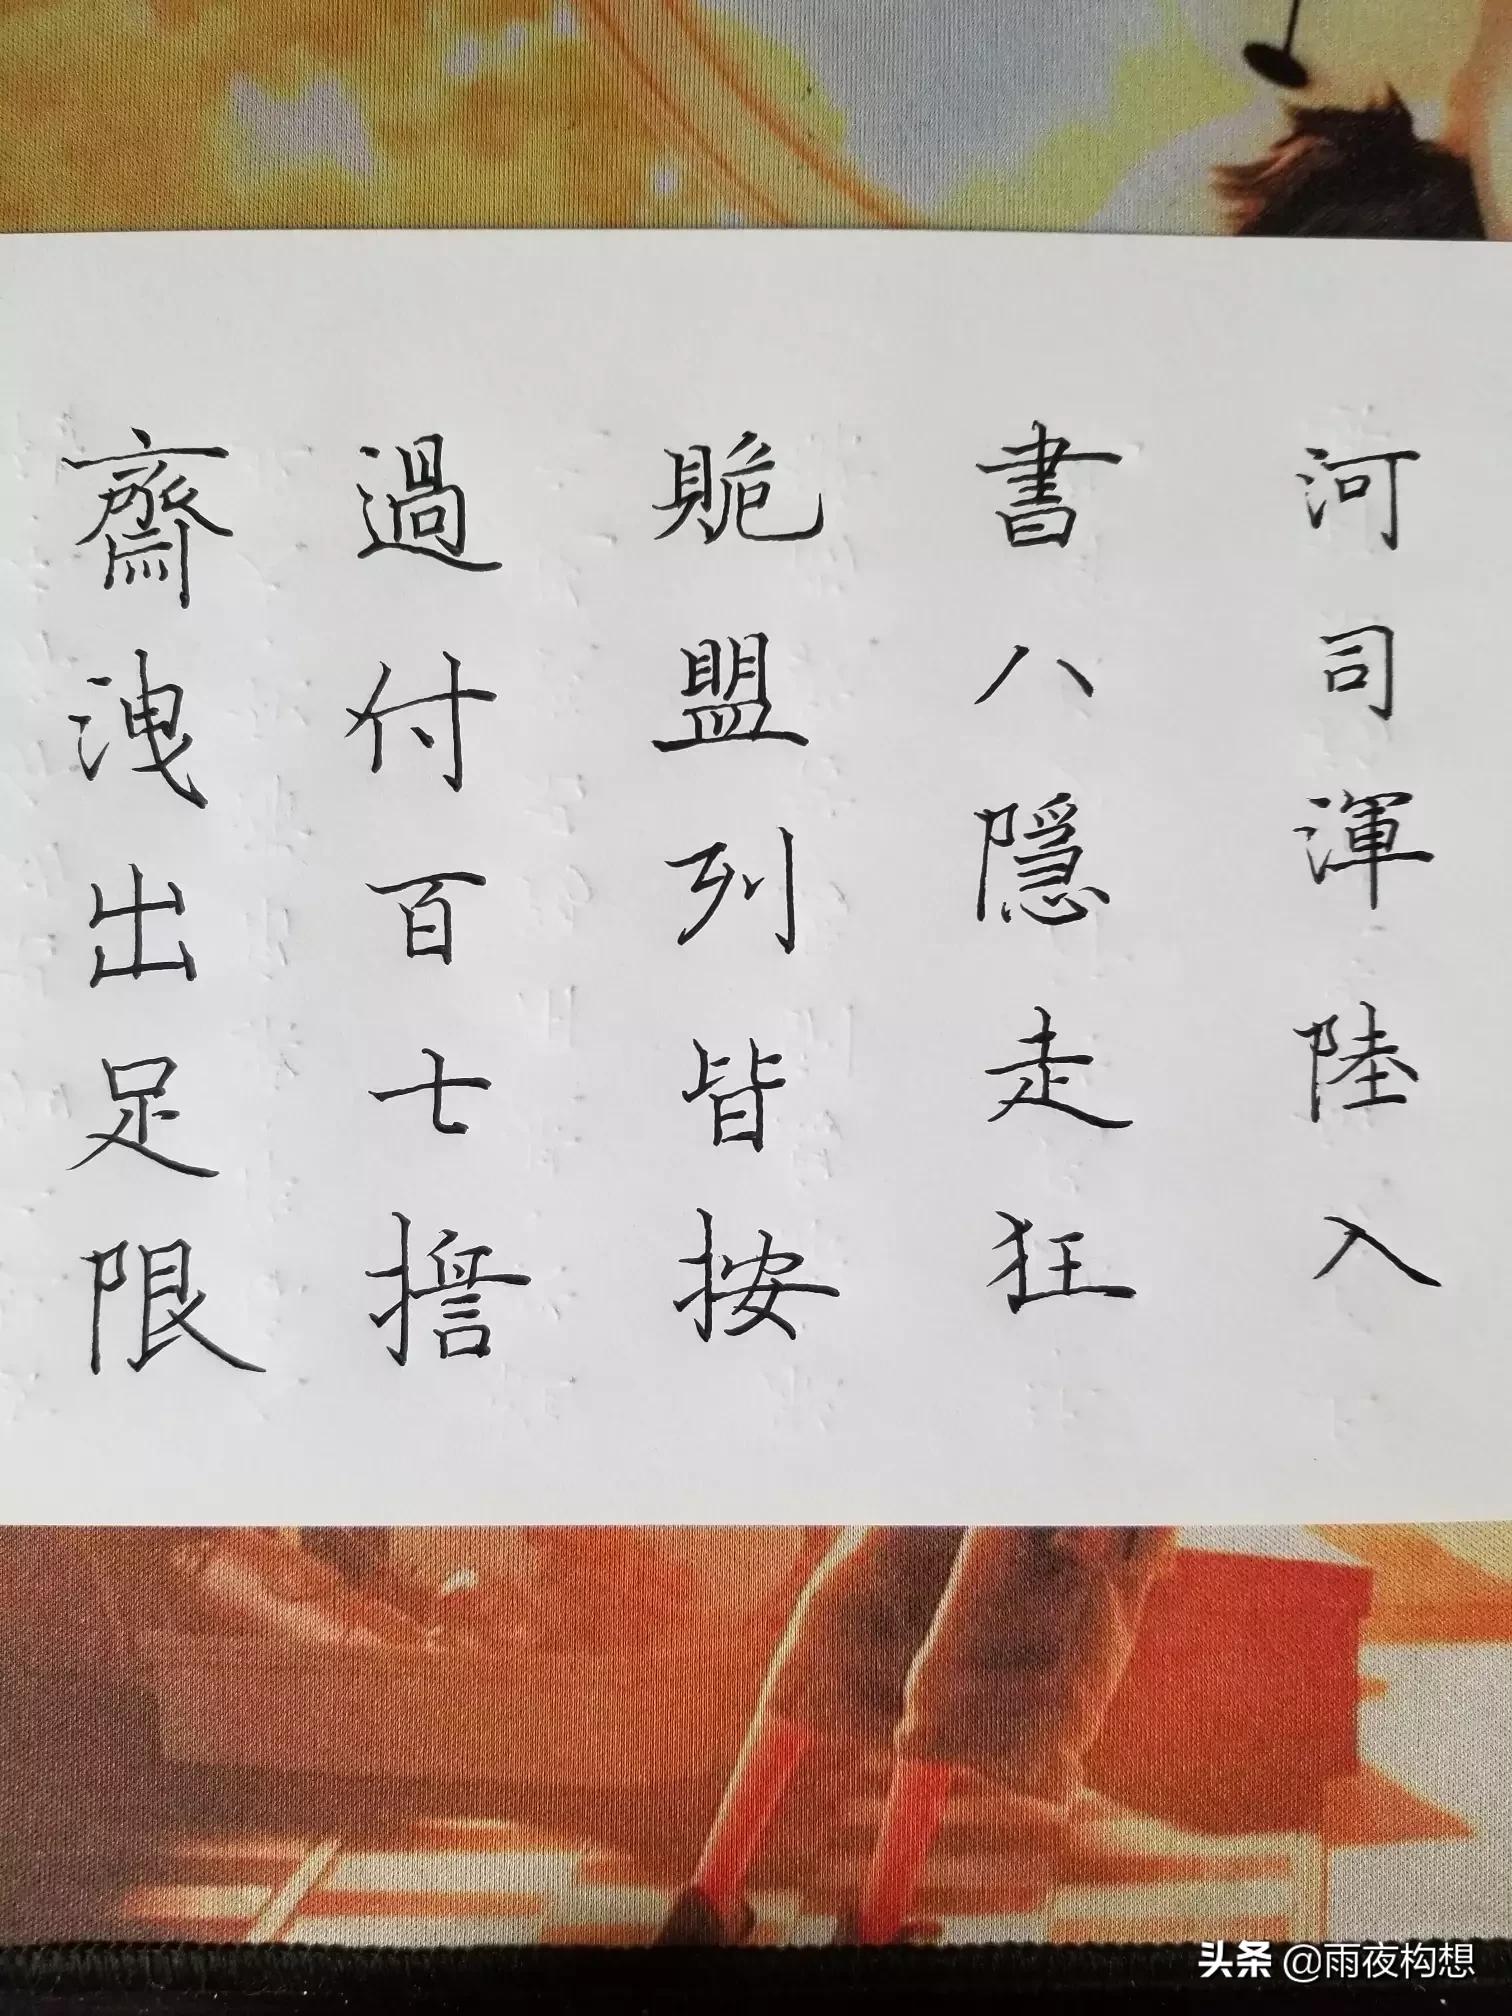 河司渾陸入
書八隱走狂
脆盟列皆按
過付百七㨪
齋洩出足限
头条 @雨夜构想